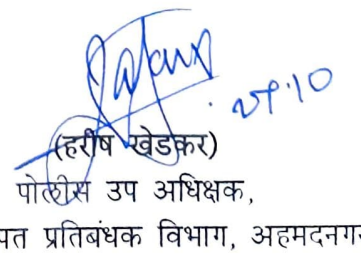 (हरीष खेडकर)
पोलीस उप अधिक्षक,
पत प्रतिबंधक विभाग, अहमदनगर